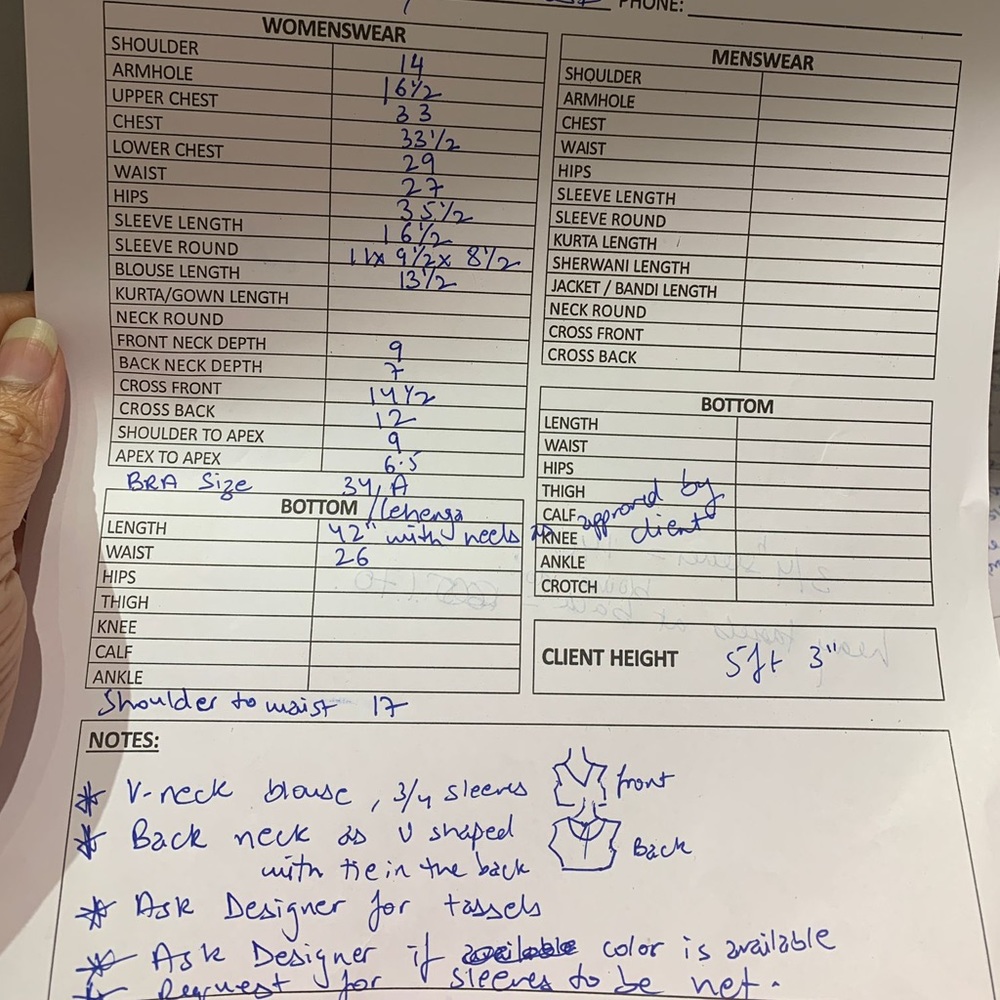 PHONE:
WOMENSWEAR
SHOULDER 14
ARMHOLE 16 1/2
UPPER CHEST 33
CHEST 33 1/2
LOWER CHEST 29
WAIST 27
HIPS 35 1/2
SLEEVE LENGTH 16 1/2
SLEEVE ROUND 11x 9 1/2 x 8 1/2
BLOUSE LENGTH 13 1/2
KURTA/GOWN LENGTH
NECK ROUND
FRONT NECK DEPTH 9
BACK NECK DEPTH 7
CROSS FRONT 14 1/2
CROSS BACK 12
SHOULDER TO APEX 9
APEX TO APEX 6.5
BRA Size 34, A
BOTTOM /Lehenga
LENGTH 42" with heels
WAIST 26
HIPS
THIGH
KNEE
CALF
ANKLE
Shoulder to waist 17
MENSWEAR
SHOULDER
ARMHOLE
CHEST
WAIST
HIPS
SLEEVE LENGTH
SLEEVE ROUND
KURTA LENGTH
SHERWANI LENGTH
JACKET / BANDI LENGTH
NECK ROUND
CROSS FRONT
CROSS BACK
BOTTOM
LENGTH
WAIST
HIPS
THIGH
CALF approved by
KNEE client
ANKLE
CROTCH
CLIENT HEIGHT 5ft 3"
NOTES:
* V-neck blouse, 3/4 sleeves front
* Back neck is U shaped
with tie in the back Back
* Ask Designer for tassels
* Ask Designer if color is available
* Request for sleeves to be net.